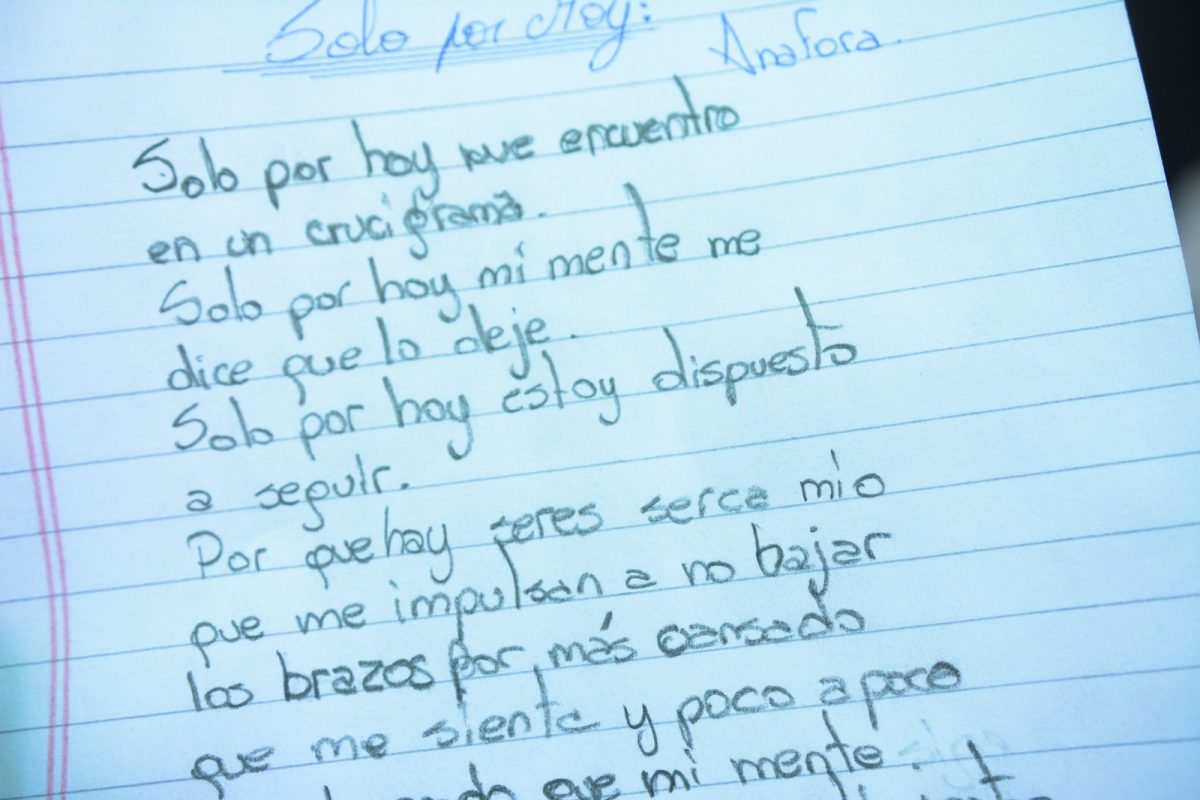 Solo por Hoy:
Anafora.
Solo por hoy que encuentro
en un crucigrama.
Solo por hoy mi mente me
dice que lo deje.
Solo por hoy estoy dispuesto
a seguir.
Por que hay seres serca mio
que me impulsan a no bajar
los brazos por más cansado
que me sienta y poco a poco
que mi mente.